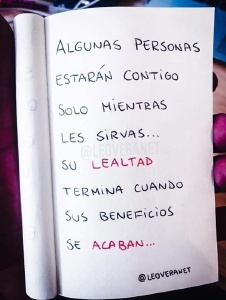 ALGUNAS PERSONAS
ESTARÁN CONTIGO
SOLO MIENTRAS
LES SIRVAS...
@LEOVERANET
SU LEALTAD
TERMINA CUANDO
SUS BENEFICIOS
SE ACABAN...
@LEOVERANET